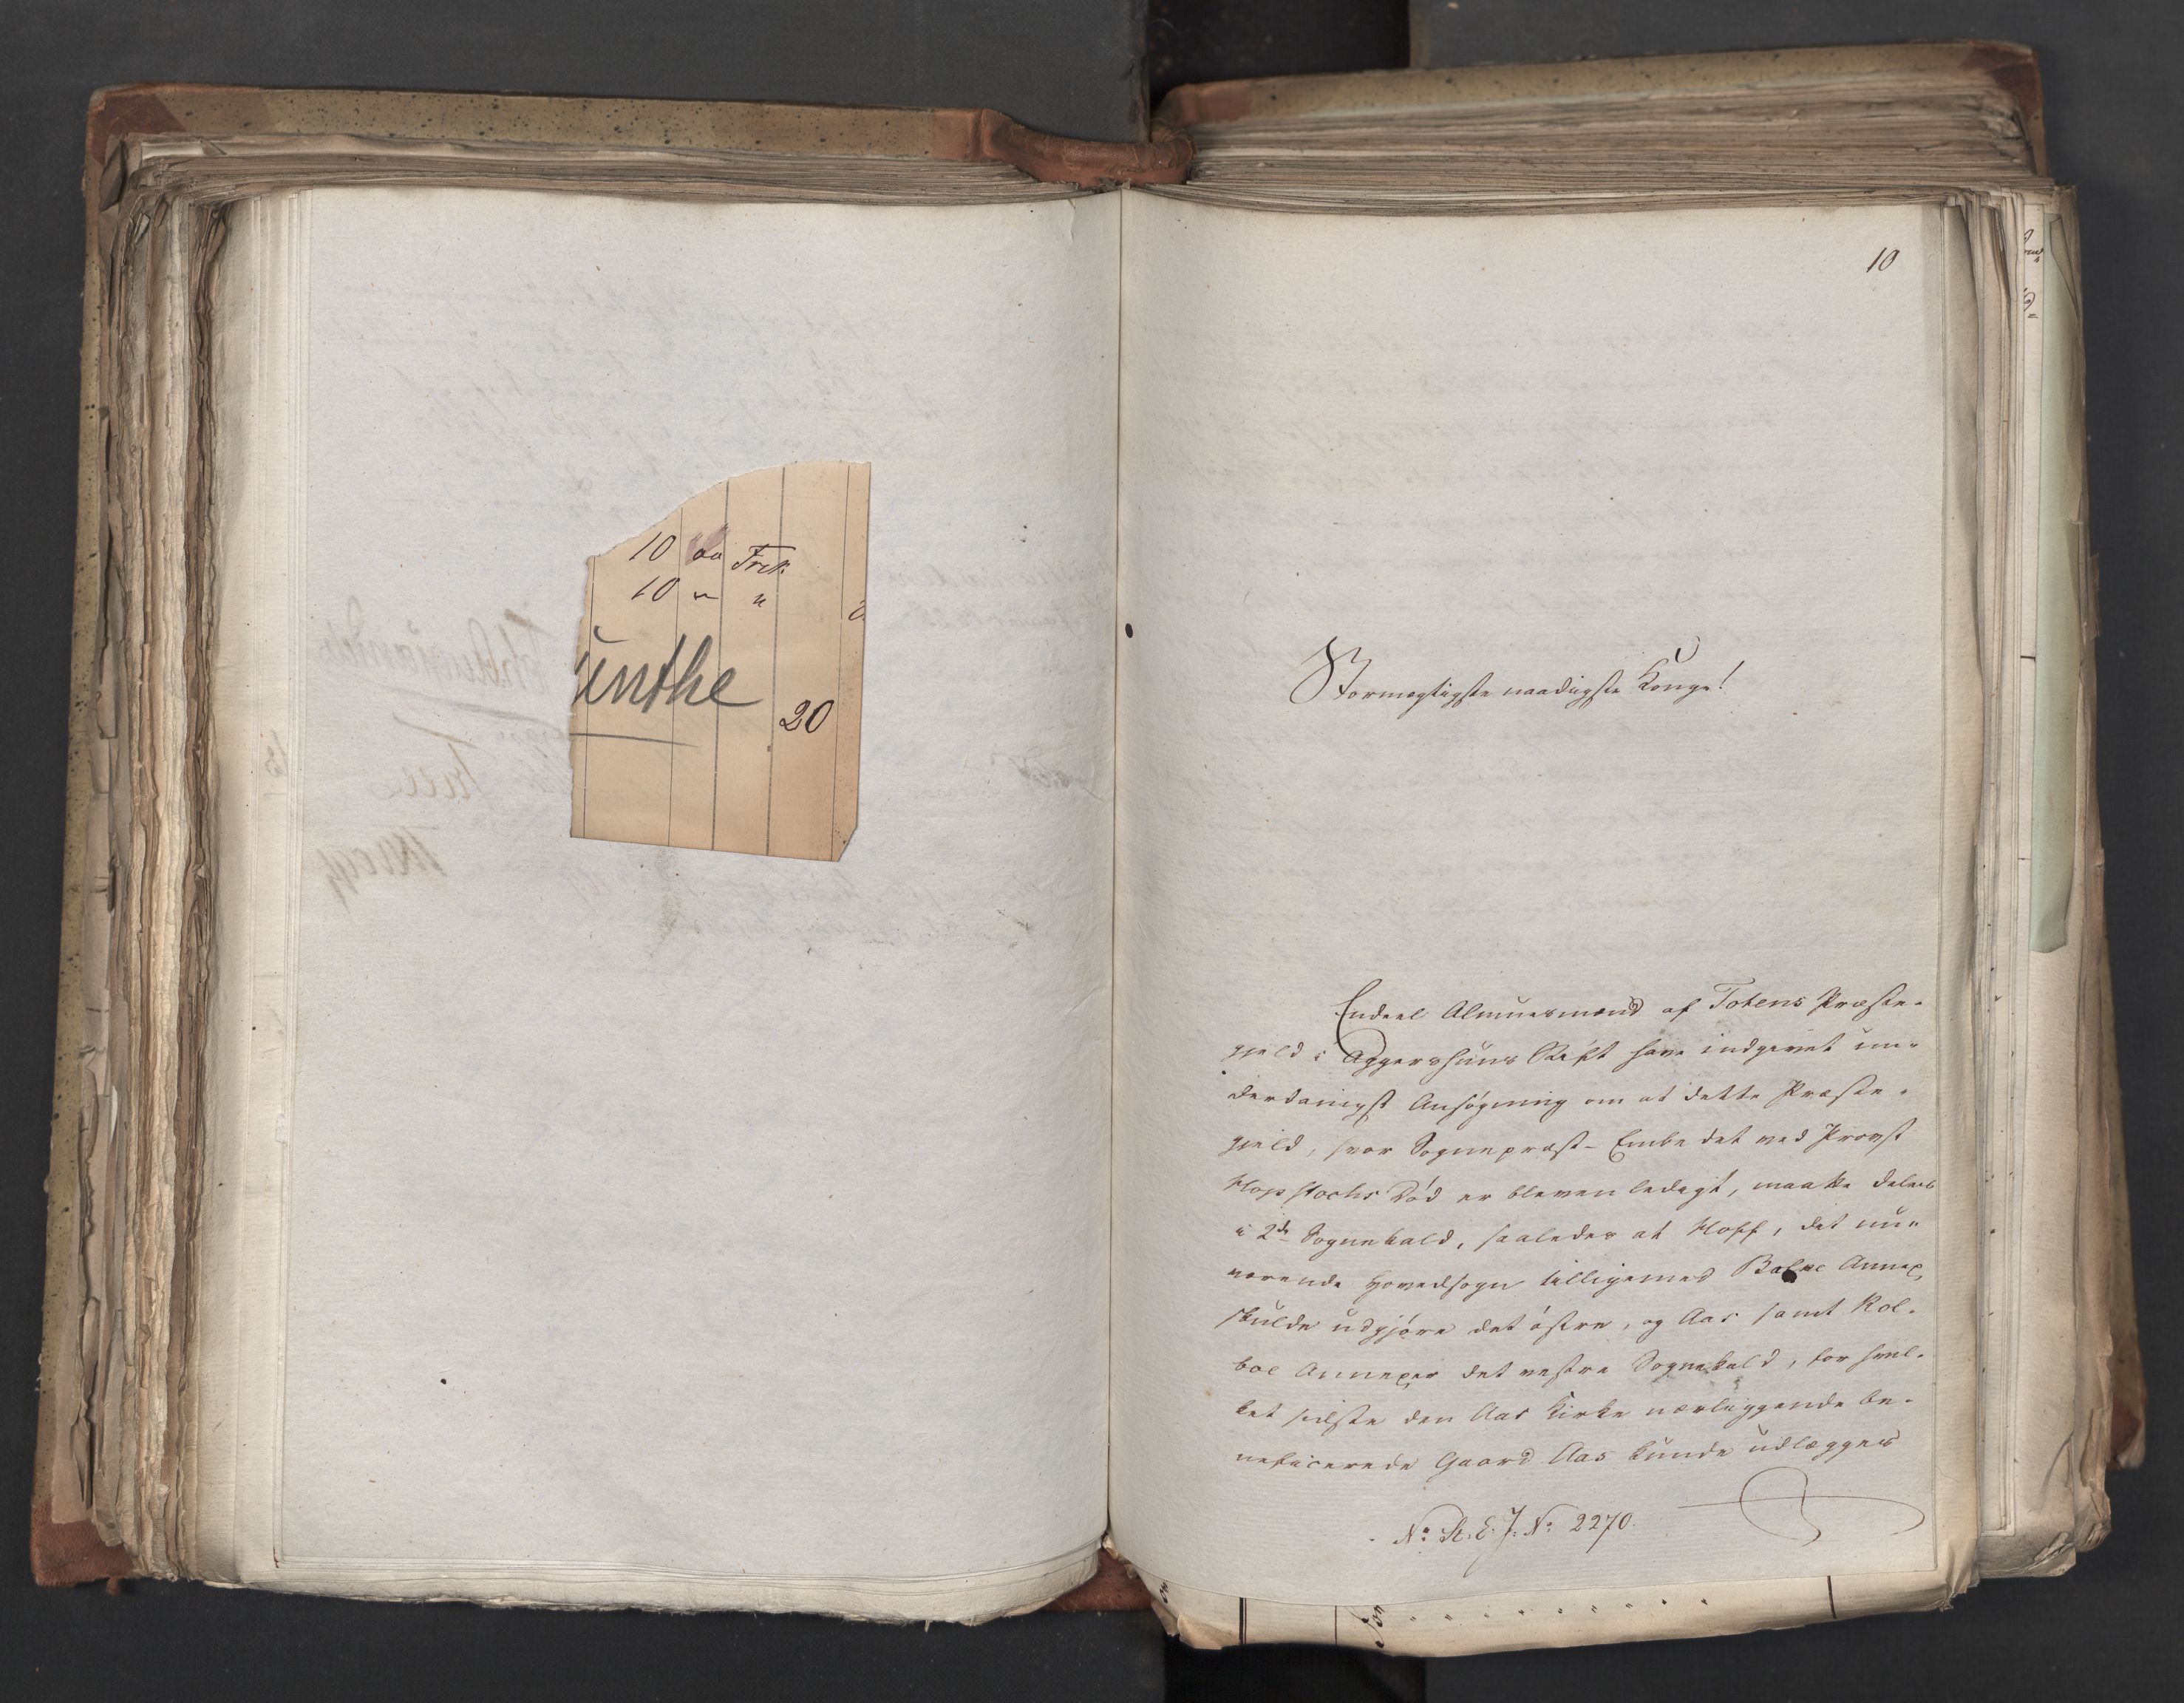 10 Frk.
10 "
unthe
20
10
Stormægtigste naadigste Konge!
Endeel Almuesmænd af Totens Præste-
gjeld i Aggershuus Stift have indgivet un-
derdanigst Ansøgning om at dette Præste-
gjeld, hvor Sognepræst-Embedet ved Provst
Hopstocks Död er bleven ledigt, maatte deles
i 2de Sognekald, saaledes at Hoff, det nu-
værende Hovedsogn tilligemed Balke Annex
skulde udgjøre det østre, og Aas samt Kol-
boe Annexer det vestre Sognekald, for hvil-
ket sidste den Aas Kirke nærliggende be-
neficerede Gaard Aas kunde udlægges
No: St. E. J. No: 2270.